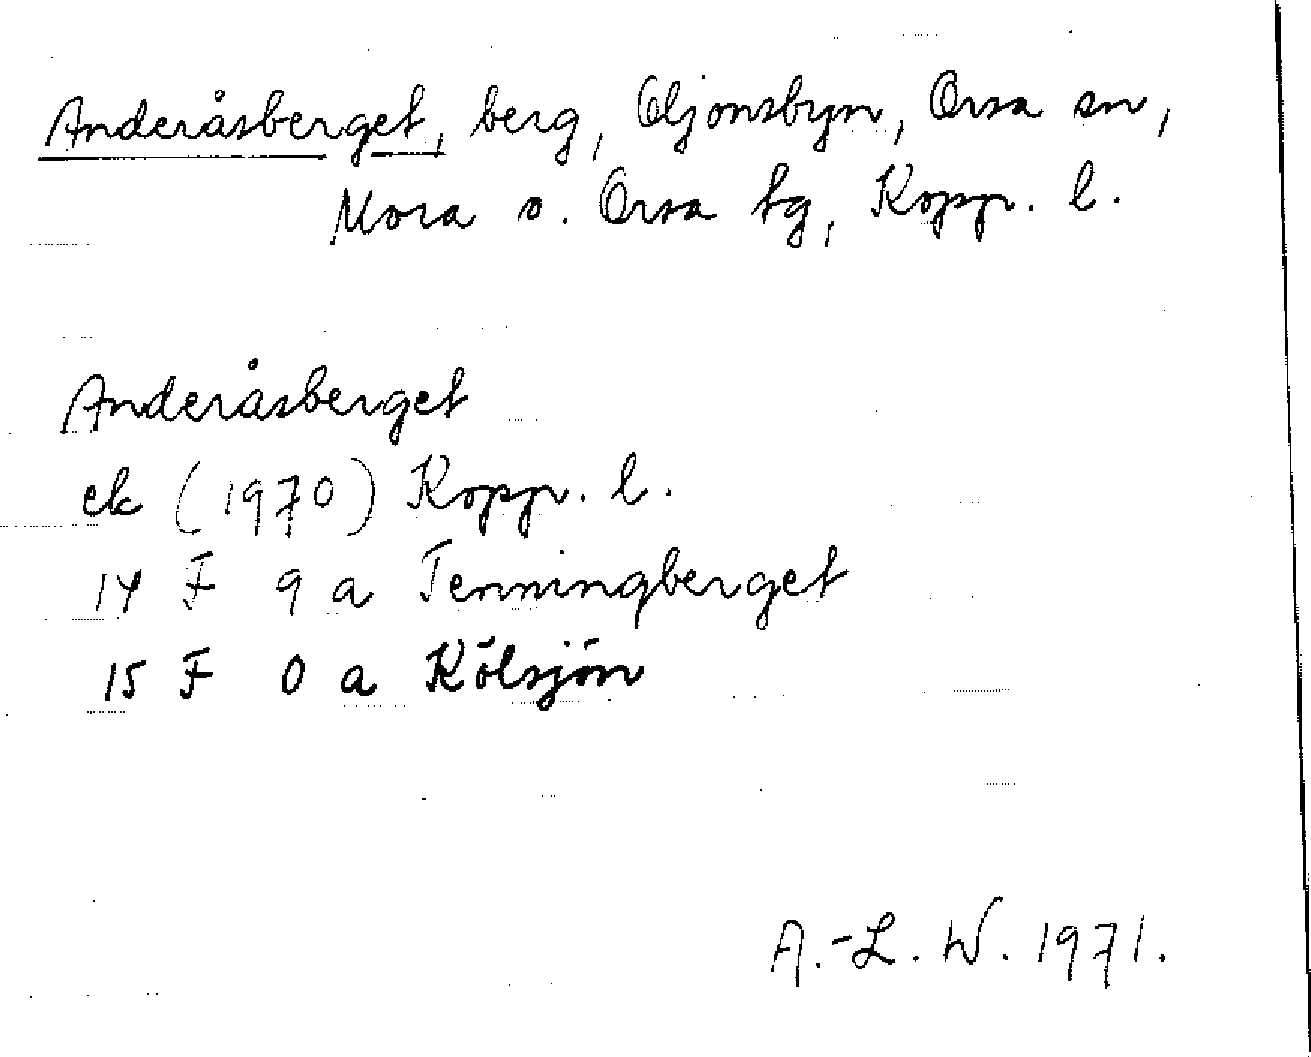 Anderåsberget, berg, Oljonsbyn, Orsa sn,
Mora o. Orsa tg, Kopp. l.
Anderåsberget
ek (1970) Kopp. l.
14 F 9 a Tenningberget
15 F 0 a Kölsjön
A.-L. W. 1971.